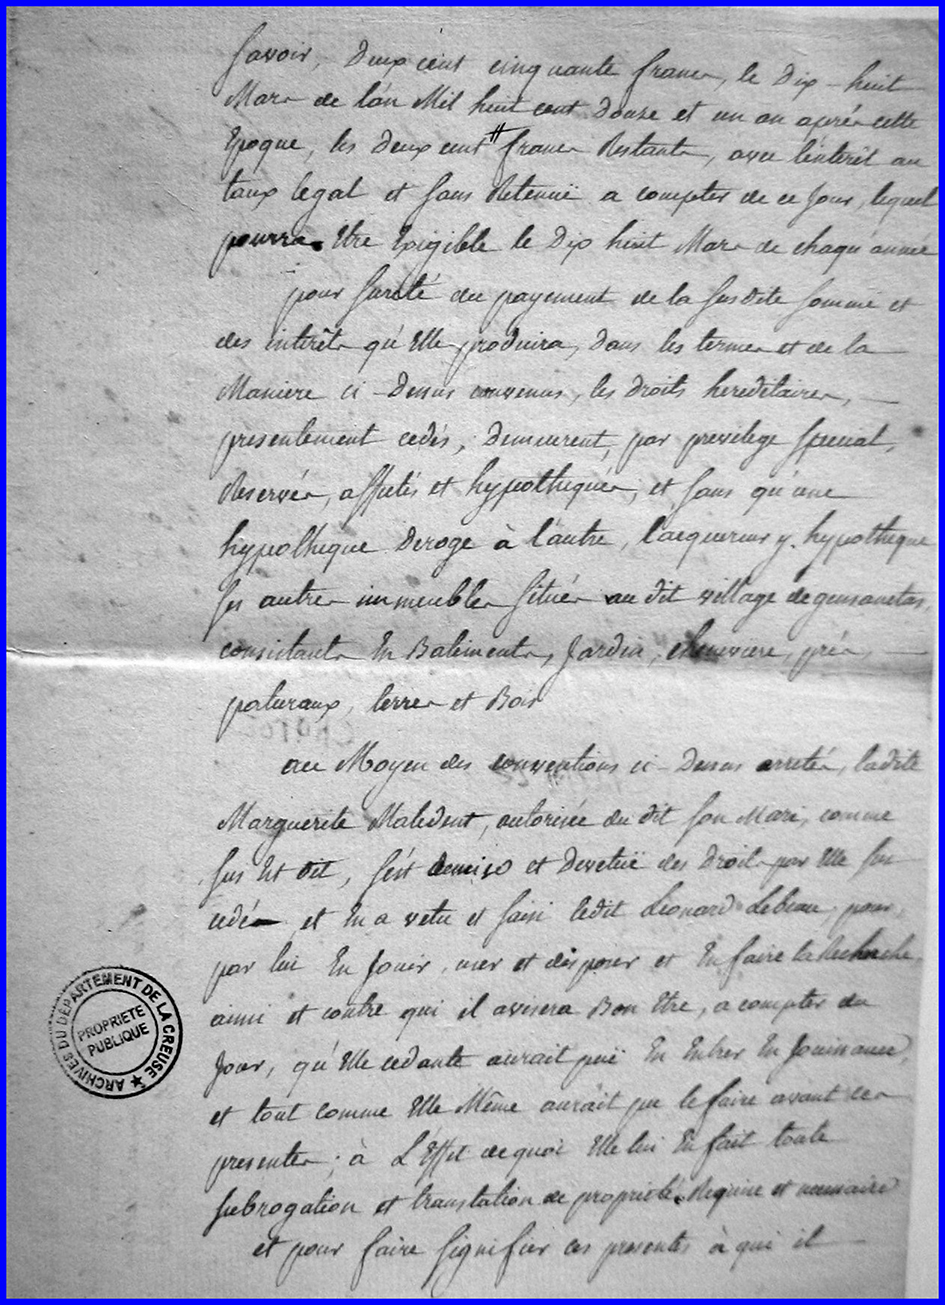 Savoir, Deux cent cinquante francs, le Dix-huit
Mars de l'an Mil huit cent Douze et un an après cette
Epoque, les deux cent # francs Restants, avec l'interêt au
taux legal et sans Retenuë a compter de ce Jour, lequel
pourra Etre Exigible le Dix huit Mars de chaqu'année
pour sureté du payement de la susdite sommë et
des interêts qu'Elle produira, dans les termes et de la
Maniere ci-Dessus convenus, les droits hereditaires,
presentement cedés, Demeurent, par previlege special,
Reservés, affectés et hypothequés, et sans qu'une
hypotheque Deroge à l'autre, l'acquereur y hypotheque
ses autres immeubles situés au dit village de
consistants En Batiments, Jardin, cheneviere, prés,
paturaux, terres et Bois
au Moyen des conventions ci-Dessus arretés, ladite
Marguerite Maledent, autorisée du dit son Mari, comme
sus Est dit, s'est demise et Devetuë des Droits par Elle sus
cedés et En a vetu et saisi ledit Léonard Lebeau, pour,
par lui En Jouir, user et disposer et En faire la Recherche,
ainsi et contre qui il avisera Bon Etre, a compter du
Jour, qu'Elle cedante aurait puë En Entrer En Jouissance,
et tout comme Elle Même aurait pu le faire avant ces
presentes; à L'Effet de quoi Elle lui En fait toute
subrogation et translation de proprieté Requise et necessaire
et pour faire signifier ces presentes à qui il
ARCHIVES DU DÉPARTEMENT DE LA CREUSE
PROPRIETE
PUBLIQUE